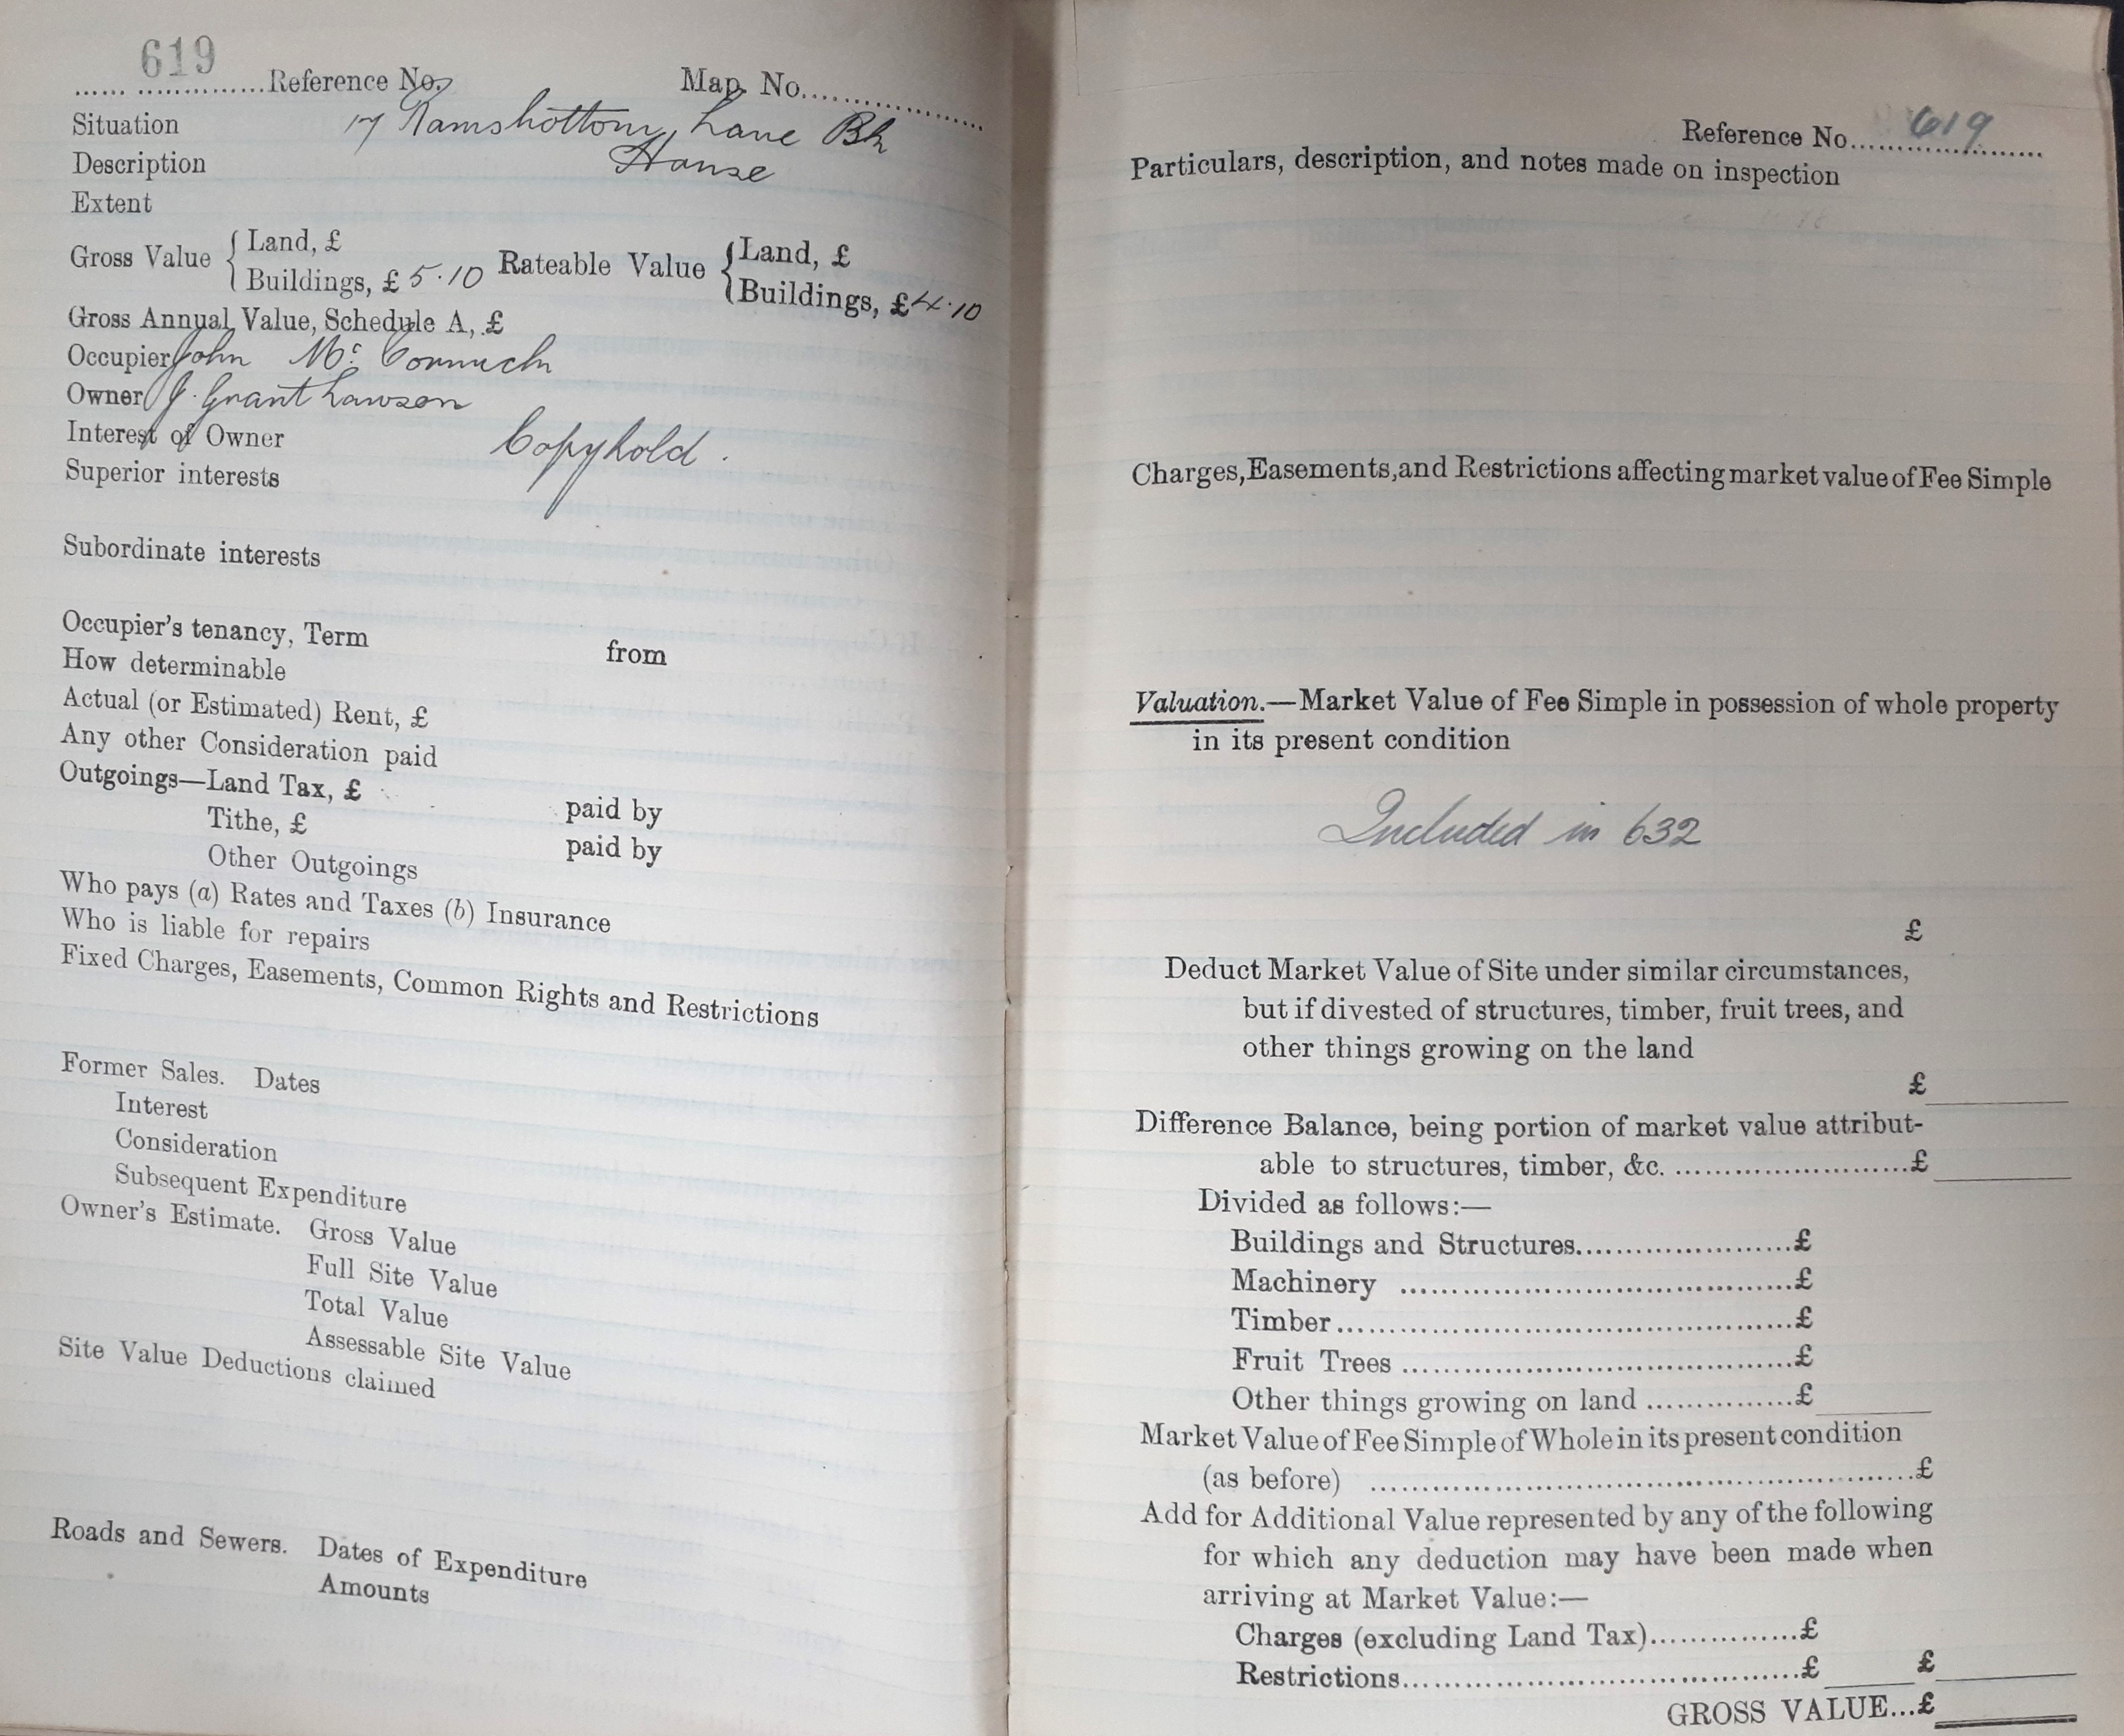 619
...... ..............Reference No. Map No....................
Situation 17 Ramsbottom Lane Bk
Description House
Extent
Gross Value { Land, £
Buildings, £ 5.10 Rateable Value { Land, £
Buildings, £ 4.10
Gross Annual Value, Schedule A, £
Occupier John Mc Cormick
Owner J. Grant Lawson
Interest of Owner Copyhold.
Superior interests
Subordinate interests
Occupier's tenancy, Term from
How determinable
Actual (or Estimated) Rent, £
Any other Consideration paid
Outgoings—Land Tax, £ paid by
Tithe, £ paid by
Other Outgoings
Who pays (a) Rates and Taxes (b) Insurance
Who is liable for repairs
Fixed Charges, Easements, Common Rights and Restrictions
Former Sales. Dates
Interest
Consideration
Subsequent Expenditure
Owner's Estimate. Gross Value
Full Site Value
Total Value
Assessable Site Value
Site Value Deductions claimed
Roads and Sewers. Dates of Expenditure
Amounts
Reference No. 619
Particulars, description, and notes made on inspection
Charges, Easements, and Restrictions affecting market value of Fee Simple
Valuation.—Market Value of Fee Simple in possession of whole property
in its present condition
Included in 632
£
Deduct Market Value of Site under similar circumstances,
but if divested of structures, timber, fruit trees, and
other things growing on the land
£
Difference Balance, being portion of market value attribut-
able to structures, timber, &c. ........................£
Divided as follows:—
Buildings and Structures......................£
Machinery ......................................£
Timber............................................£
Fruit Trees .....................................£
Other things growing on land ...............£
Market Value of Fee Simple of Whole in its present condition
(as before) ....................................................£
Add for Additional Value represented by any of the following
for which any deduction may have been made when
arriving at Market Value:—
Charges (excluding Land Tax)...............£
Restrictions.......................................£ £
GROSS VALUE...£